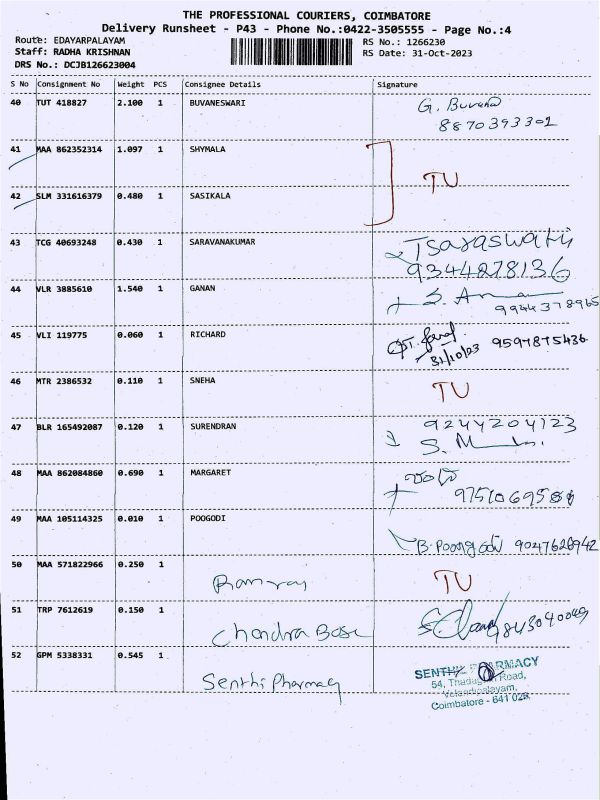 THE PROFESSIONAL COURIERS, COIMBATORE
Delivery Runsheet - P43 - Phone No.:0422-3505555 - Page No.:4
Route: EDAYARPALAYAM
RS No.: 1266230
Staff: RADHA KRISHNAN
RS Date: 31-Oct-2023
DRS No.: DCJB126623004
S No Consignment No Weight PCS Consignee Details Signature
40 TUT 418827 2.100 1 BUVANESWARI G. Buvana
8870393302
41 MAA 862352314 1.097 1 SHYMALA
TU
42 SLM 331616379 0.480 1 SASIKALA
43 TCG 40693248 0.430 1 SARAVANAKUMAR Tsaraswathi
9344278136
44 VLR 3885610 1.540 1 GANAN
9944378965
45 VLI 119775 0.060 1 RICHARD
31/10/23 9597875436
46 MTR 2386532 0.110 1 SNEHA TU
47 BLR 165492087 0.120 1 SURENDRAN 9244204123
48 MAA 862084860 0.690 1 MARGARET
49 MAA 105114325 0.010 1 POOGODI
9047628942
50 MAA 571822966 0.250 1 Ramraj TU
51 TRP 7612619 0.150 1 Chandra Bose 9843040049
52 GPM 5338331 0.545 1 Senthi Pharmacy
SENTHIL PHARMACY
54, Road,
Coimbatore - 641 025.